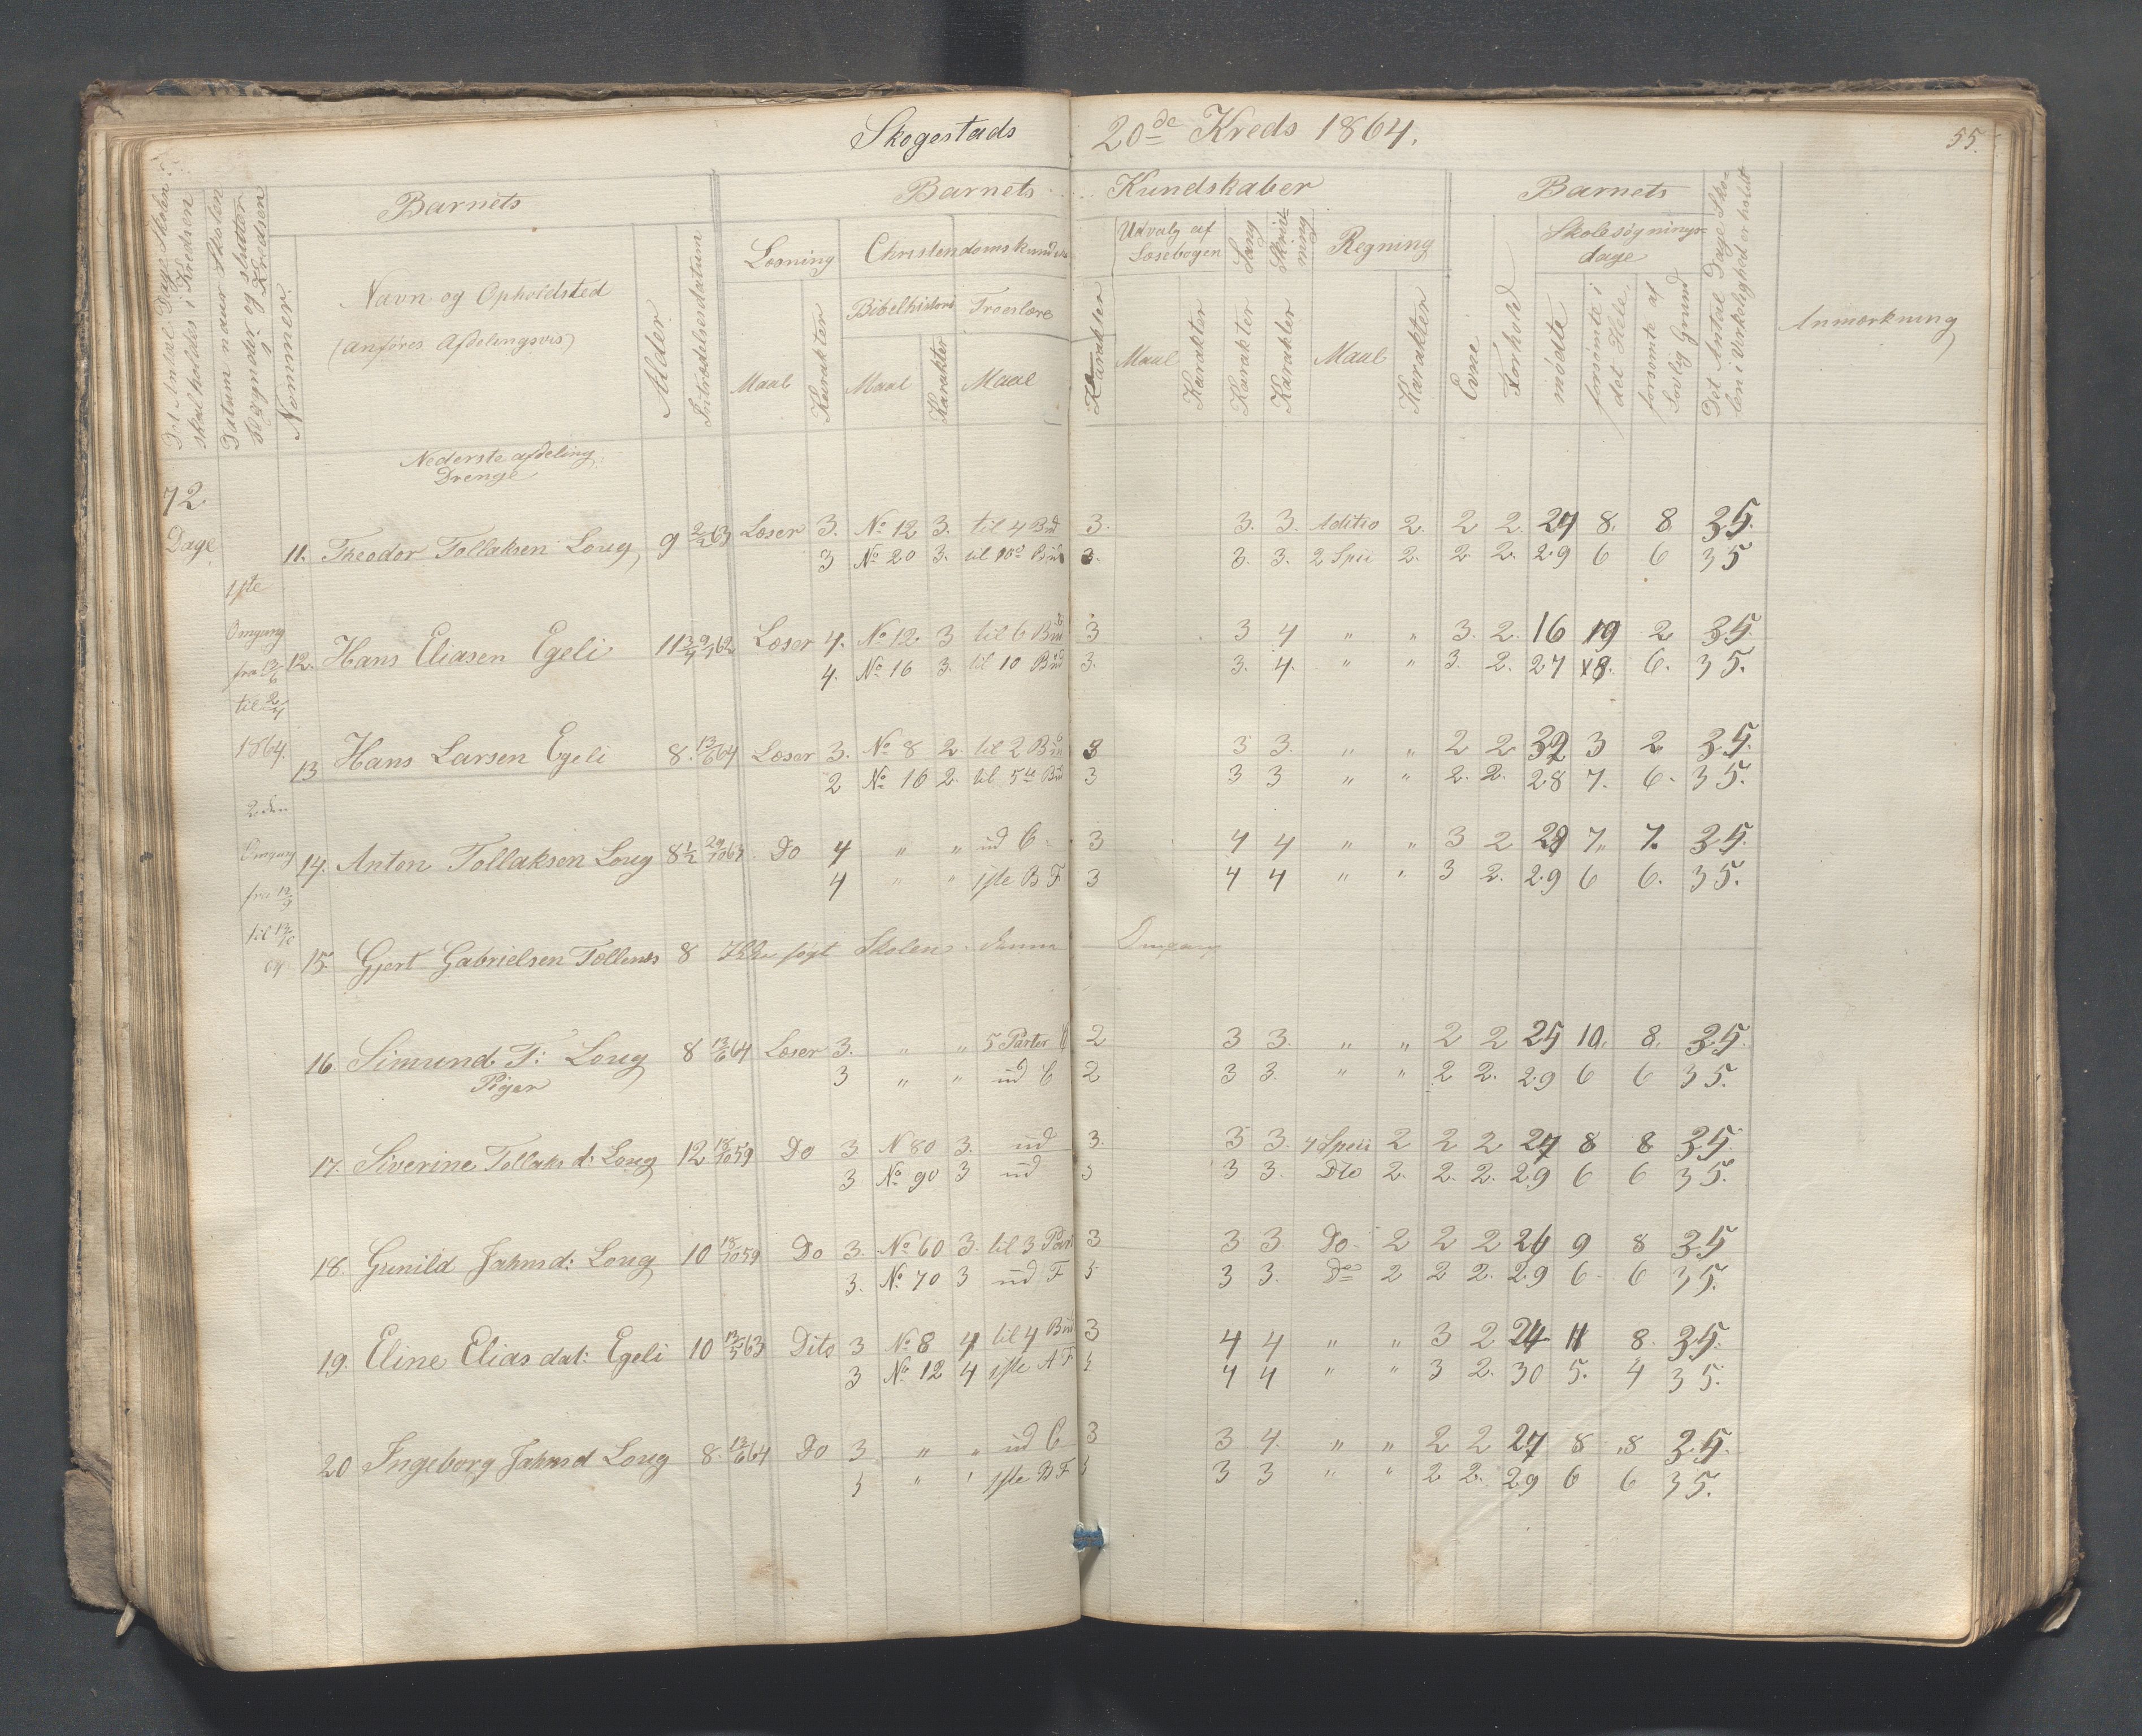 Skogestads 20de Kreds 1864.
55.
Det Antal Dage Skolen skal holdes i Kredsen
Datum naar Skolen begynder og slutter i Kredsen
Nommer.
Barnets
Navn og Opholdsted
(anføres Afdelingsvis)
Alder
Intrædelsesdatum
Barnets Kundskaber
Læsning
Maal
Karakter
Christendomskundsk
Bibelhistori
Maal
Karakter
Troeslære
Maal
Karakter
Udvalg af Læsebogen
Maal
Karakter
Sang
Karakter
Skrivning
Karakter
Regning
Maal
Karakter
Barnets
Evne
Forhold
Skolesøgningsdage
mødte
forsømte i det Hele
forsømte af Lovlig Grund
Det Antal Dage Skolen i Virkelighed er holdt
Anmærkning
Nederste afdeling
Drenge
72
Dage
1ste
Omgang
fra 13/6
til 2/7
1864.
2den
Omgang
fra 12/9
til 12/10
64
11. Theodor Tollaksen Loug 9 2/2 63 Læser 3. No 12 3. til 4 Bud 3. 3. 3. Aditio 2. 2 2. 27 8. 8 35.
3 No 20 3. til 10de Bud 3. 3. 3. 2 Speci 2. 2. 2. 29 6 6 35
12. Hans Eliasen Egeli 11 3/4 62 Læser 4. No 12 3 til 6 Bud 3 3 4 " " 3. 2. 16 19 2 35.
4. No 16 3. til 10 Bud 3. 3. 4. " " 3. 2. 27 8. 6. 35.
13 Hans Larsen Egeli 8. 13/6 64 Læser 3. No 8 2. til 2 Bud 3 3 3. " " 2 2 32 3 2 35.
2 No 16 2. til 5te Bud 3 3 3 " " 2. 2. 28 7. 6. 35.
14. Anton Tollaksen Loug 8 1/2 29/10 63 Do 4 " " ud C 3 4 4 " " 3 2 28 7. 7. 35.
4 " " 1ste B F 3 4 4 " " 3 2. 29 6 6. 35.
15. Gjert Gabrielsen Tollenes 8 Ikke søgt Skolen denne Omgang
16. Simund T: Loug 8 13/6 64 Læser 3. " " 5 Parter 2 3 3. " " 2 2 25 10. 8. 35.
Piger
3 " " ud C 2 3 3. " " 2 2. 29 6 6 35.
17. Siverine Tollaks d: Loug 12 18/10 59 Do 3. N 80 3. ud 3. 3 3. 4 Speci 2 2 2 27 8 8 35.
3 No 90 3 ud 3 3 3. Dto 2. 2. 2. 29 6 6 35.
18. Gunild Jahns d: Loug 10 18/10 59 Do 3. No 60 3. til 3 Part 3 3 3 Do 2 2 2 26 9 8 35
3. No 70 3 ud F 3 3 3. Do 2 2 2. 29 6 6 35.
19. Eline Elias dat: Egeli 10 13/5 63 Dito 3 No 8 4 til 4 Bud 3 4 4 " " 3 2 24 11 8. 35.
3 No 12 4 1ste A F 3 4 4 " " 3 2. 30 5. 4 35.
20 Ingeborg Jahns d Loug 8. 13/6 64 Do 3 " " ud C 3 3 4. " " 2 2 27 8 8 35.
3 " " 1ste B F 3 3 3 " " 2 2. 29 6 6 35.